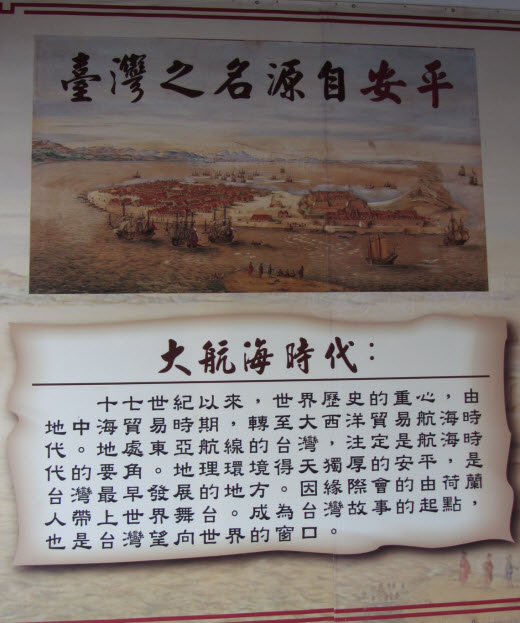 臺灣之名源自安平
大航海時代：
十七世紀以來，世界歷史的重心，由
地中海貿易時期，轉至大西洋貿易航海時
代。地處東亞航線的台灣，注定是航海時
代的要角。地理環境得天獨厚的安平，是
台灣最早發展的地方。因緣際會的由荷蘭
人帶上世界舞台。成為台灣故事的起點，
也是台灣望向世界的窗口。